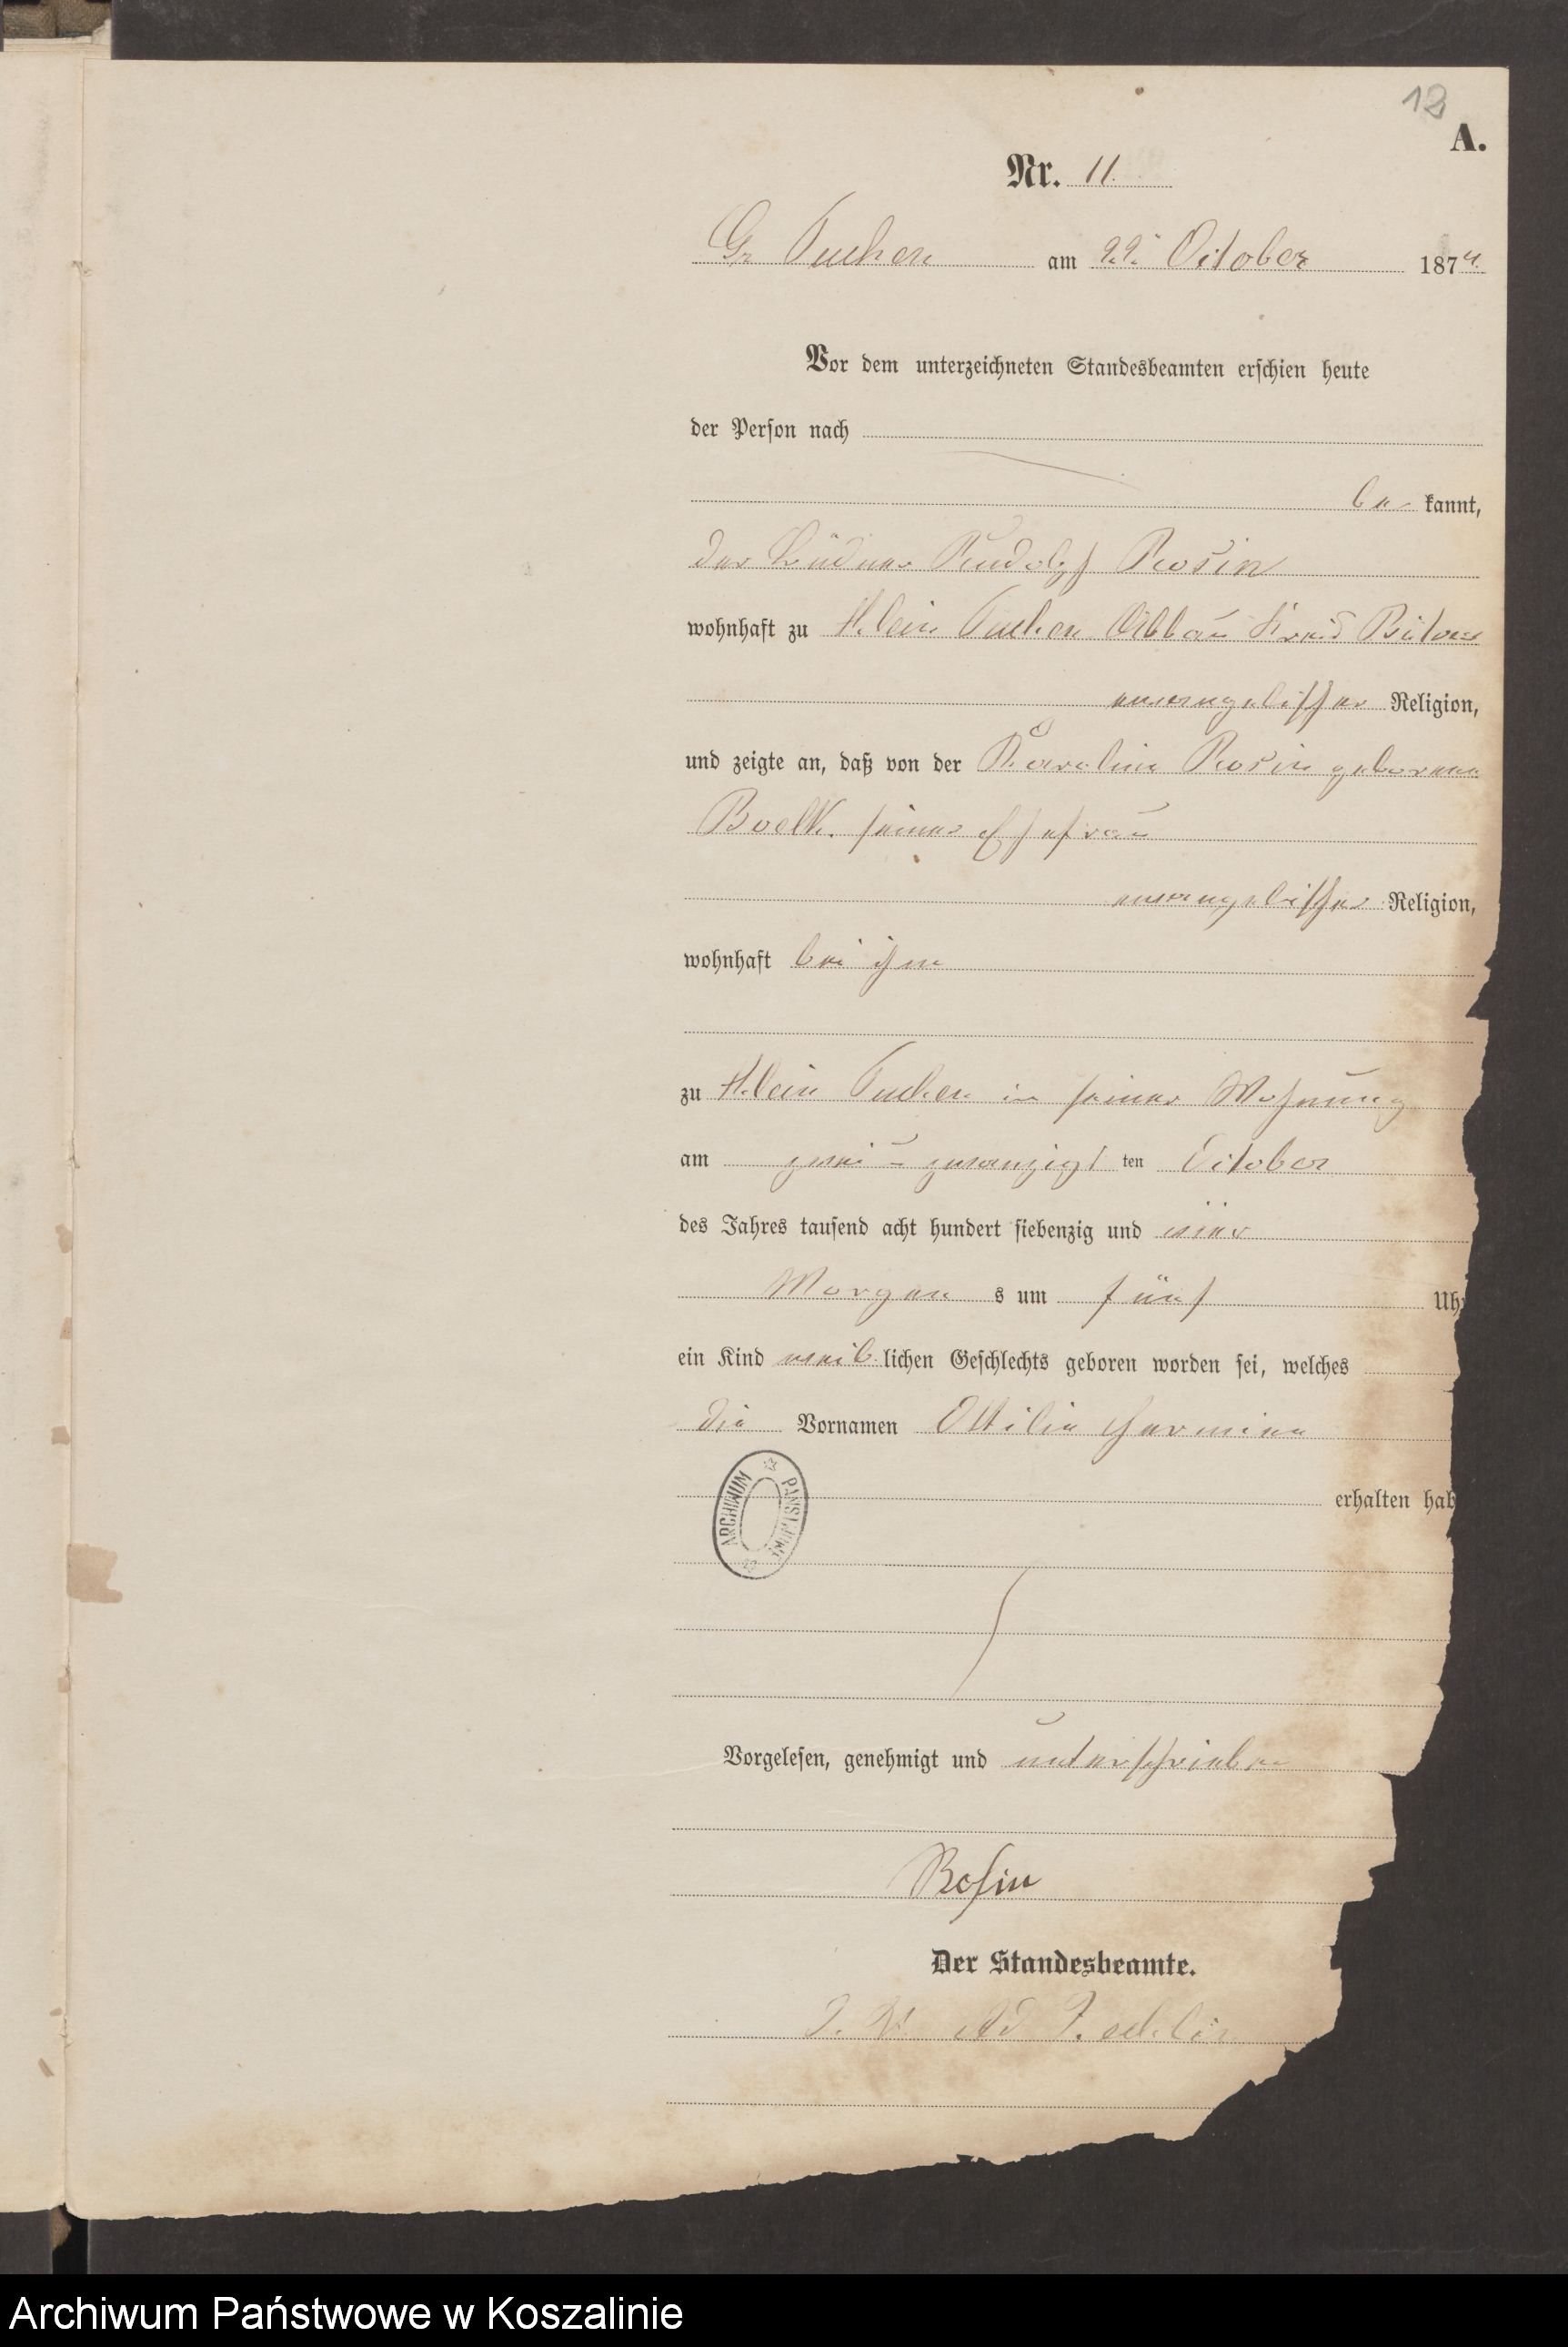 12
A.
Nr. 11.
Gr Tuchen am 22. October 1874.
Vor dem unterzeichneten Standesbeamten erschien heute
der Person nach
be kannt,
der Büdner Rudolf Rosin
wohnhaft zu Klein Tuchen Abbau Kreis Bütow
evangelischer Religion,
und zeigte an, daß von der Karoline Rosin geborene
Boelk seiner Ehefrau
evangelischer Religion,
wohnhaft bei ihm
zu Klein Tuchen in seiner Wohnung
am zwei u zwanzigs ten October
des Jahres tausend acht hundert siebenzig und vier
Morgen s um fünf Uhr
ein Kind weib lichen Geschlechts geboren worden sei, welches
die Vornamen Ottilie Hermine
erhalten hab
ARCHIWUM PAŃSTWOWE
Vorgelesen, genehmigt und unterschrieben
Rosin
Der Standesbeamte.
I. V. Ad
Archiwum Państwowe w Koszalinie